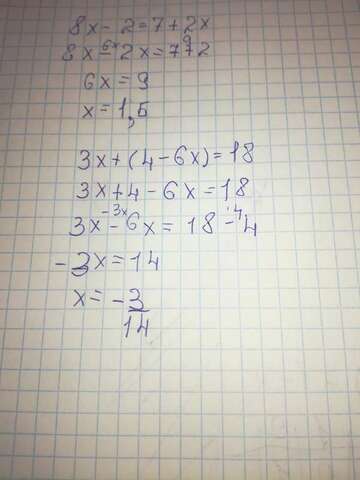 8x - 2 = 7 + 2x
8x - 2x = 7 + 2
6x = 9
x = 1,5
3x + (4 - 6x) = 18
3x + 4 - 6x = 18
3x - 6x = 18 - 4
-3x = 14
x = -3/14